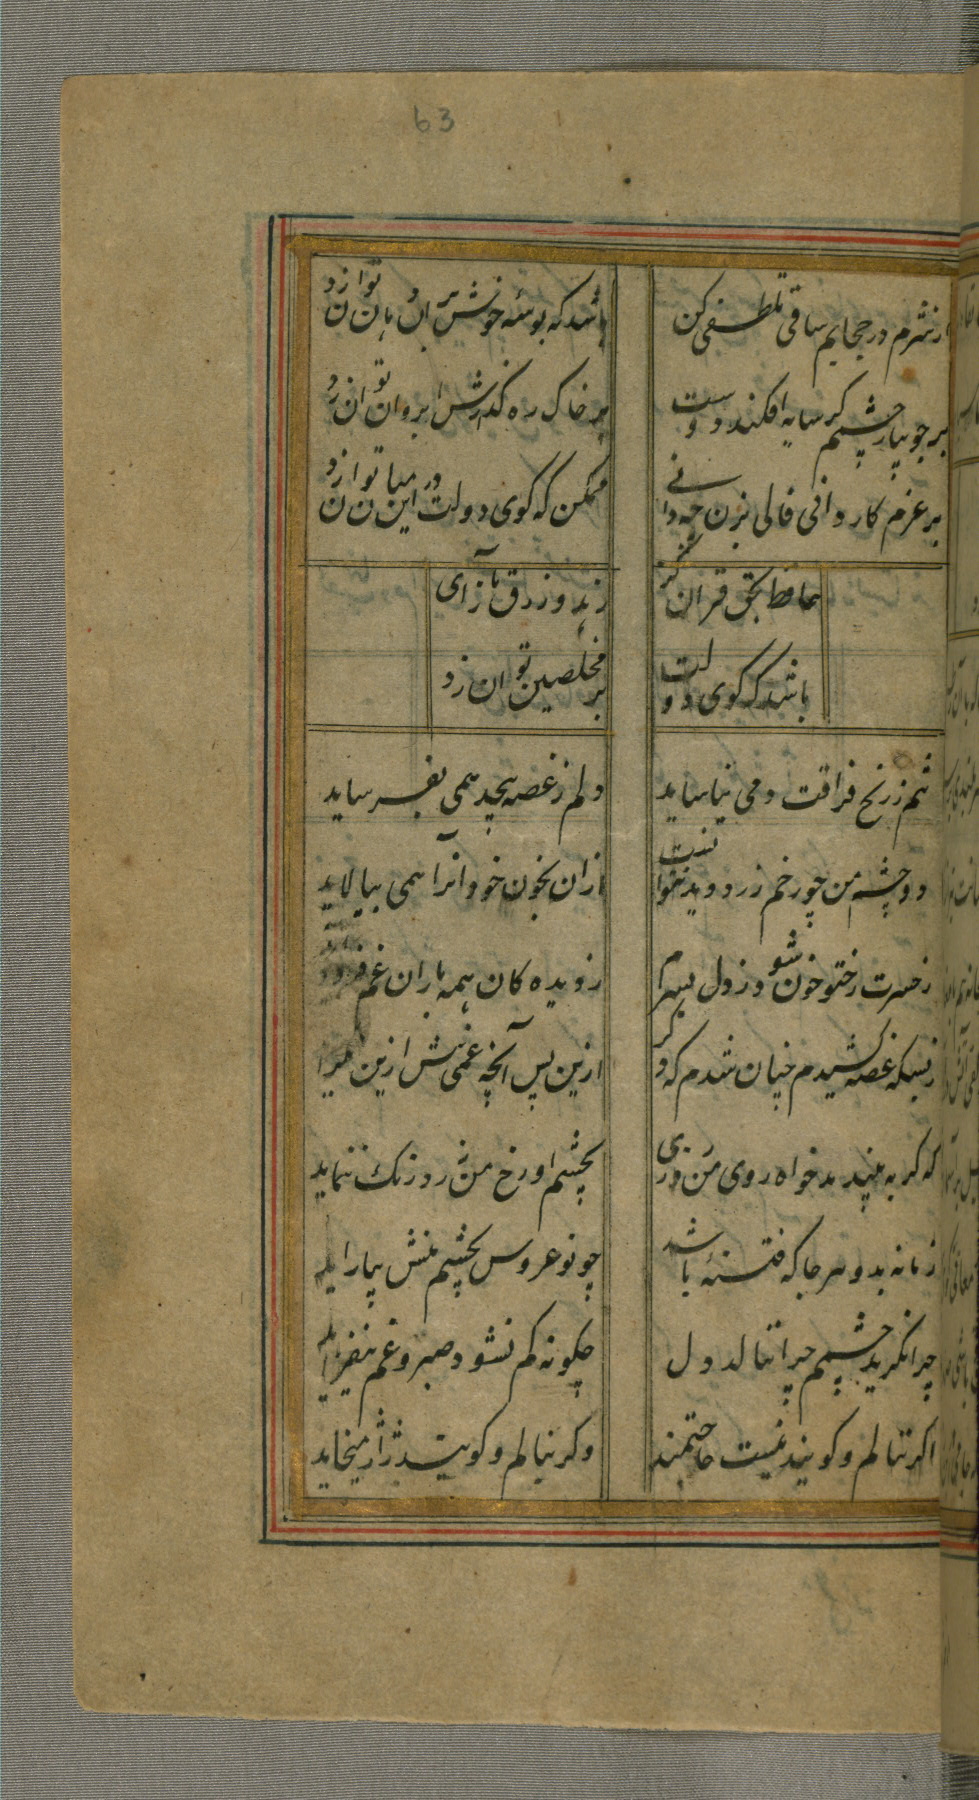 63
از شرم در حجابم ساقی تلطفی کن
باشد که بوسهٔ خوش بر آن دهان توان زد
بر جویبار چشمم گر سایه افکند دوست
بر خاک ره گذرش آب روان توان زد
بر عزم کاردانی فالی بزن چه دانی
ممکن که گوی دولت در این میان توان زد
حافظ بحق قران کز
زرق و باز آی
باشد که گوی دولت
بر مخلصین توان زد
تنم ز رنج فراقت دمی نیاساید
دلم ز غصه همی بفرساید
دو چشم من چو رخم زرد دید نتوانست
ازان بخون خود آنرا همی بیالاید
ز حسرت رخ تو خون شود ز دل بسرم
ز دیده کان همه باران غم
ز بسکه غصه کشیدم چنان شدم که دگر
ازین پس آنچه غمی نیش ازین
که گر به بیند بدخواه روی من روزی
بچشم او رخ من زرد رنگ ننماید
زمانه بد و هر جا که فتنهٔ باشد
چو نو عروس بچشم منش بیاراید
چرا نگرید چشمم چرا ننالد دل
چگونه کم نشود صبر و غم نیفزاید
اگر ننالم و گویند نیست حاجتمند
وگر بنالم و گویند ژاژ میخاید